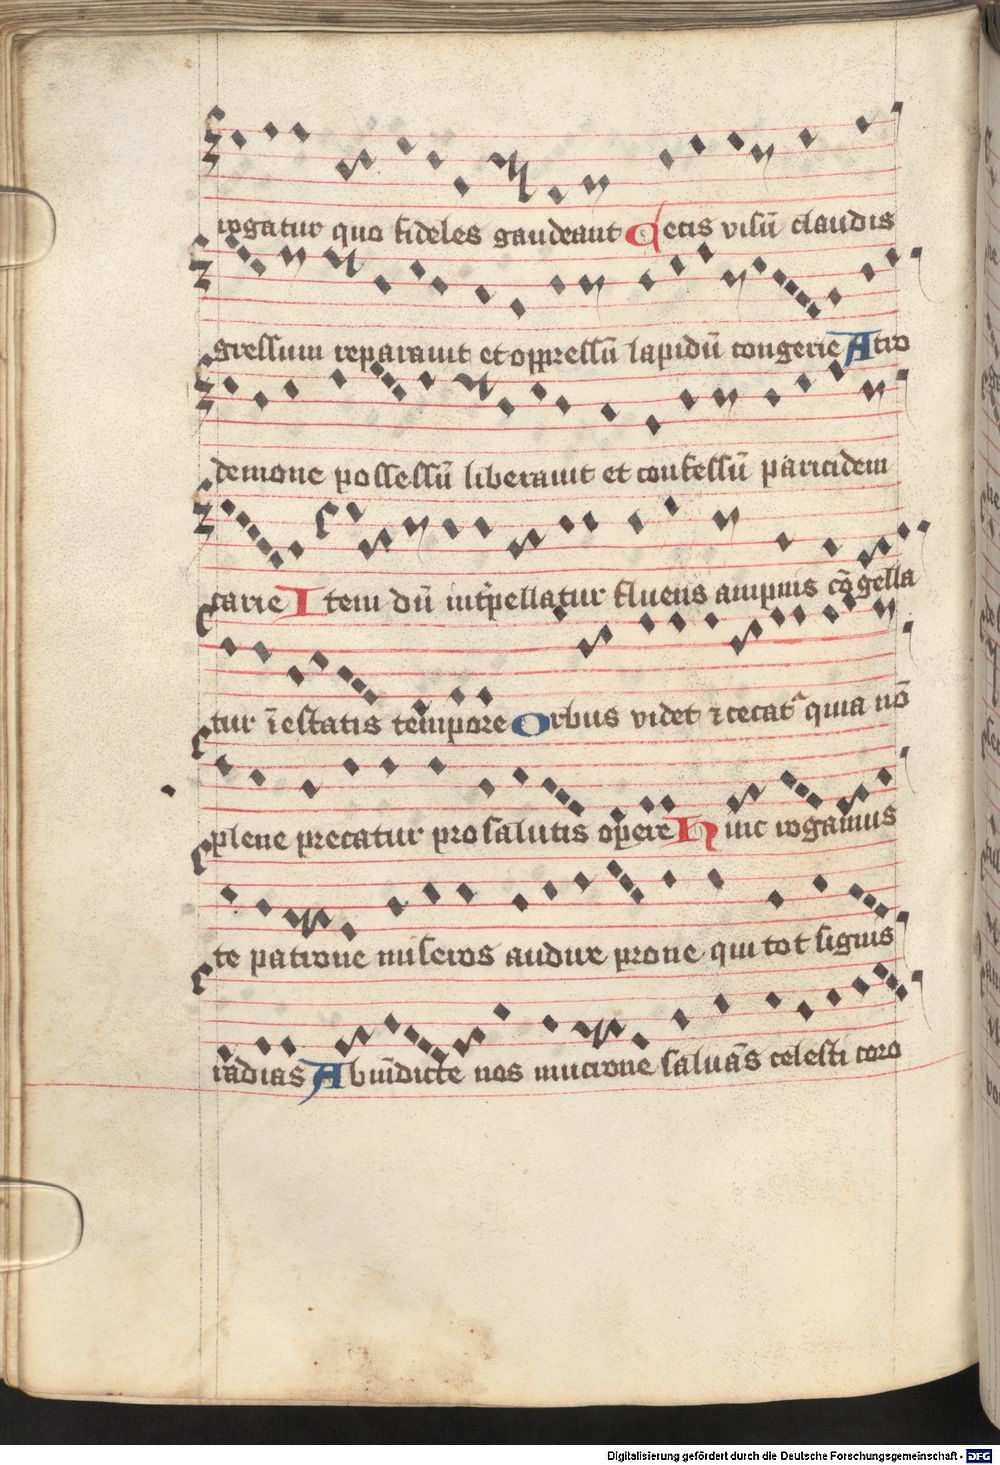 rogatur quo fideles gaudeant Cecis visū claudis
gressum reparauit et oppressū lapidū congerie Atro
demone possessū liberauit et confessū paricidem
carie Item dū int̉pellatur fluens ampnis cōgella
tur ī estatis tempore Orbus videt ⁊ cecat᷑ quia nō
plene precatur pro salutis opere Hinc rogamus
te patrone miseros audire prone qui tot signis
radias A bn̄dicte nos mucrone saluās celesti coro
Digitalisierung gefördert durch die Deutsche Forschungsgemeinschaft - DFG